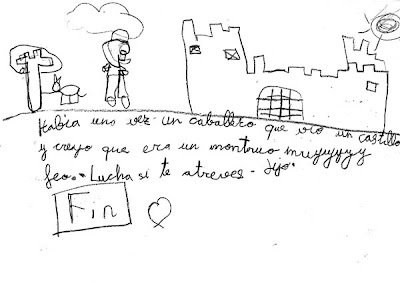 Había una vez un caballero que vio un castillo
y creyo que era un montruo muyyyyyy
feo. Lucha si te atreves - dijo.
Fin